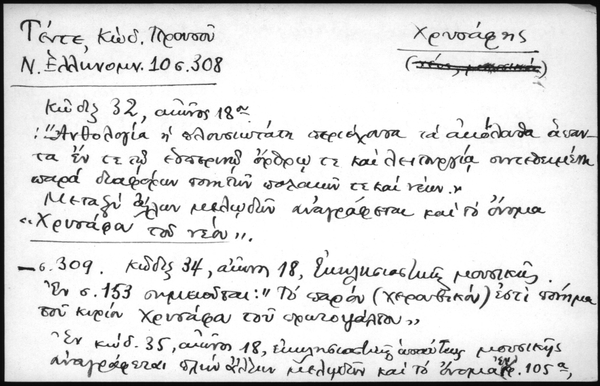 Τέντε, Κώδ. Προυσοῦ
Χρυσάφης
Ν. Ἑλληνομν. 10 σ. 308
(νέος, μουσικός)
Κῶδιξ 32, αἰῶνος 18ου
: "Ἀνθολογία ἡ πλουσιωτάτη περιέχουσα τὰ ἀκόλουθα ἅπαν-
τα ἔν τε τῷ ἑσπερινῷ ὄρθρῳ τε καὶ λειτουργίᾳ συντεθειμένη
παρὰ διαφόρων ποιητῶν παλαιῶν τε καὶ νέων."
Μεταξὺ ἄλλων μελῳδῶν ἀναγράφεται καὶ τὸ ὄνομα
"Χρυσάφα τοῦ νέου".
– σ. 309. Κῶδιξ 34, αἰῶνος 18, Ἐκκλησιαστικῆς μουσικῆς.
Ἐν σ. 153 σημειοῦται: "Τὸ παρὸν (χερουβικὸν) ἐστὶ ποίημα
τοῦ κυρίου Χρυσάφου τοῦ πρωτοψάλτου"
Ἐν κώδ. 35, αἰῶνος 18, ἐκκλησιαστικῆς μουσικῆς
ἀναγράφεται πλὴν ἄλλων μελῳδῶν καὶ τὸ ὄνομα 105α,